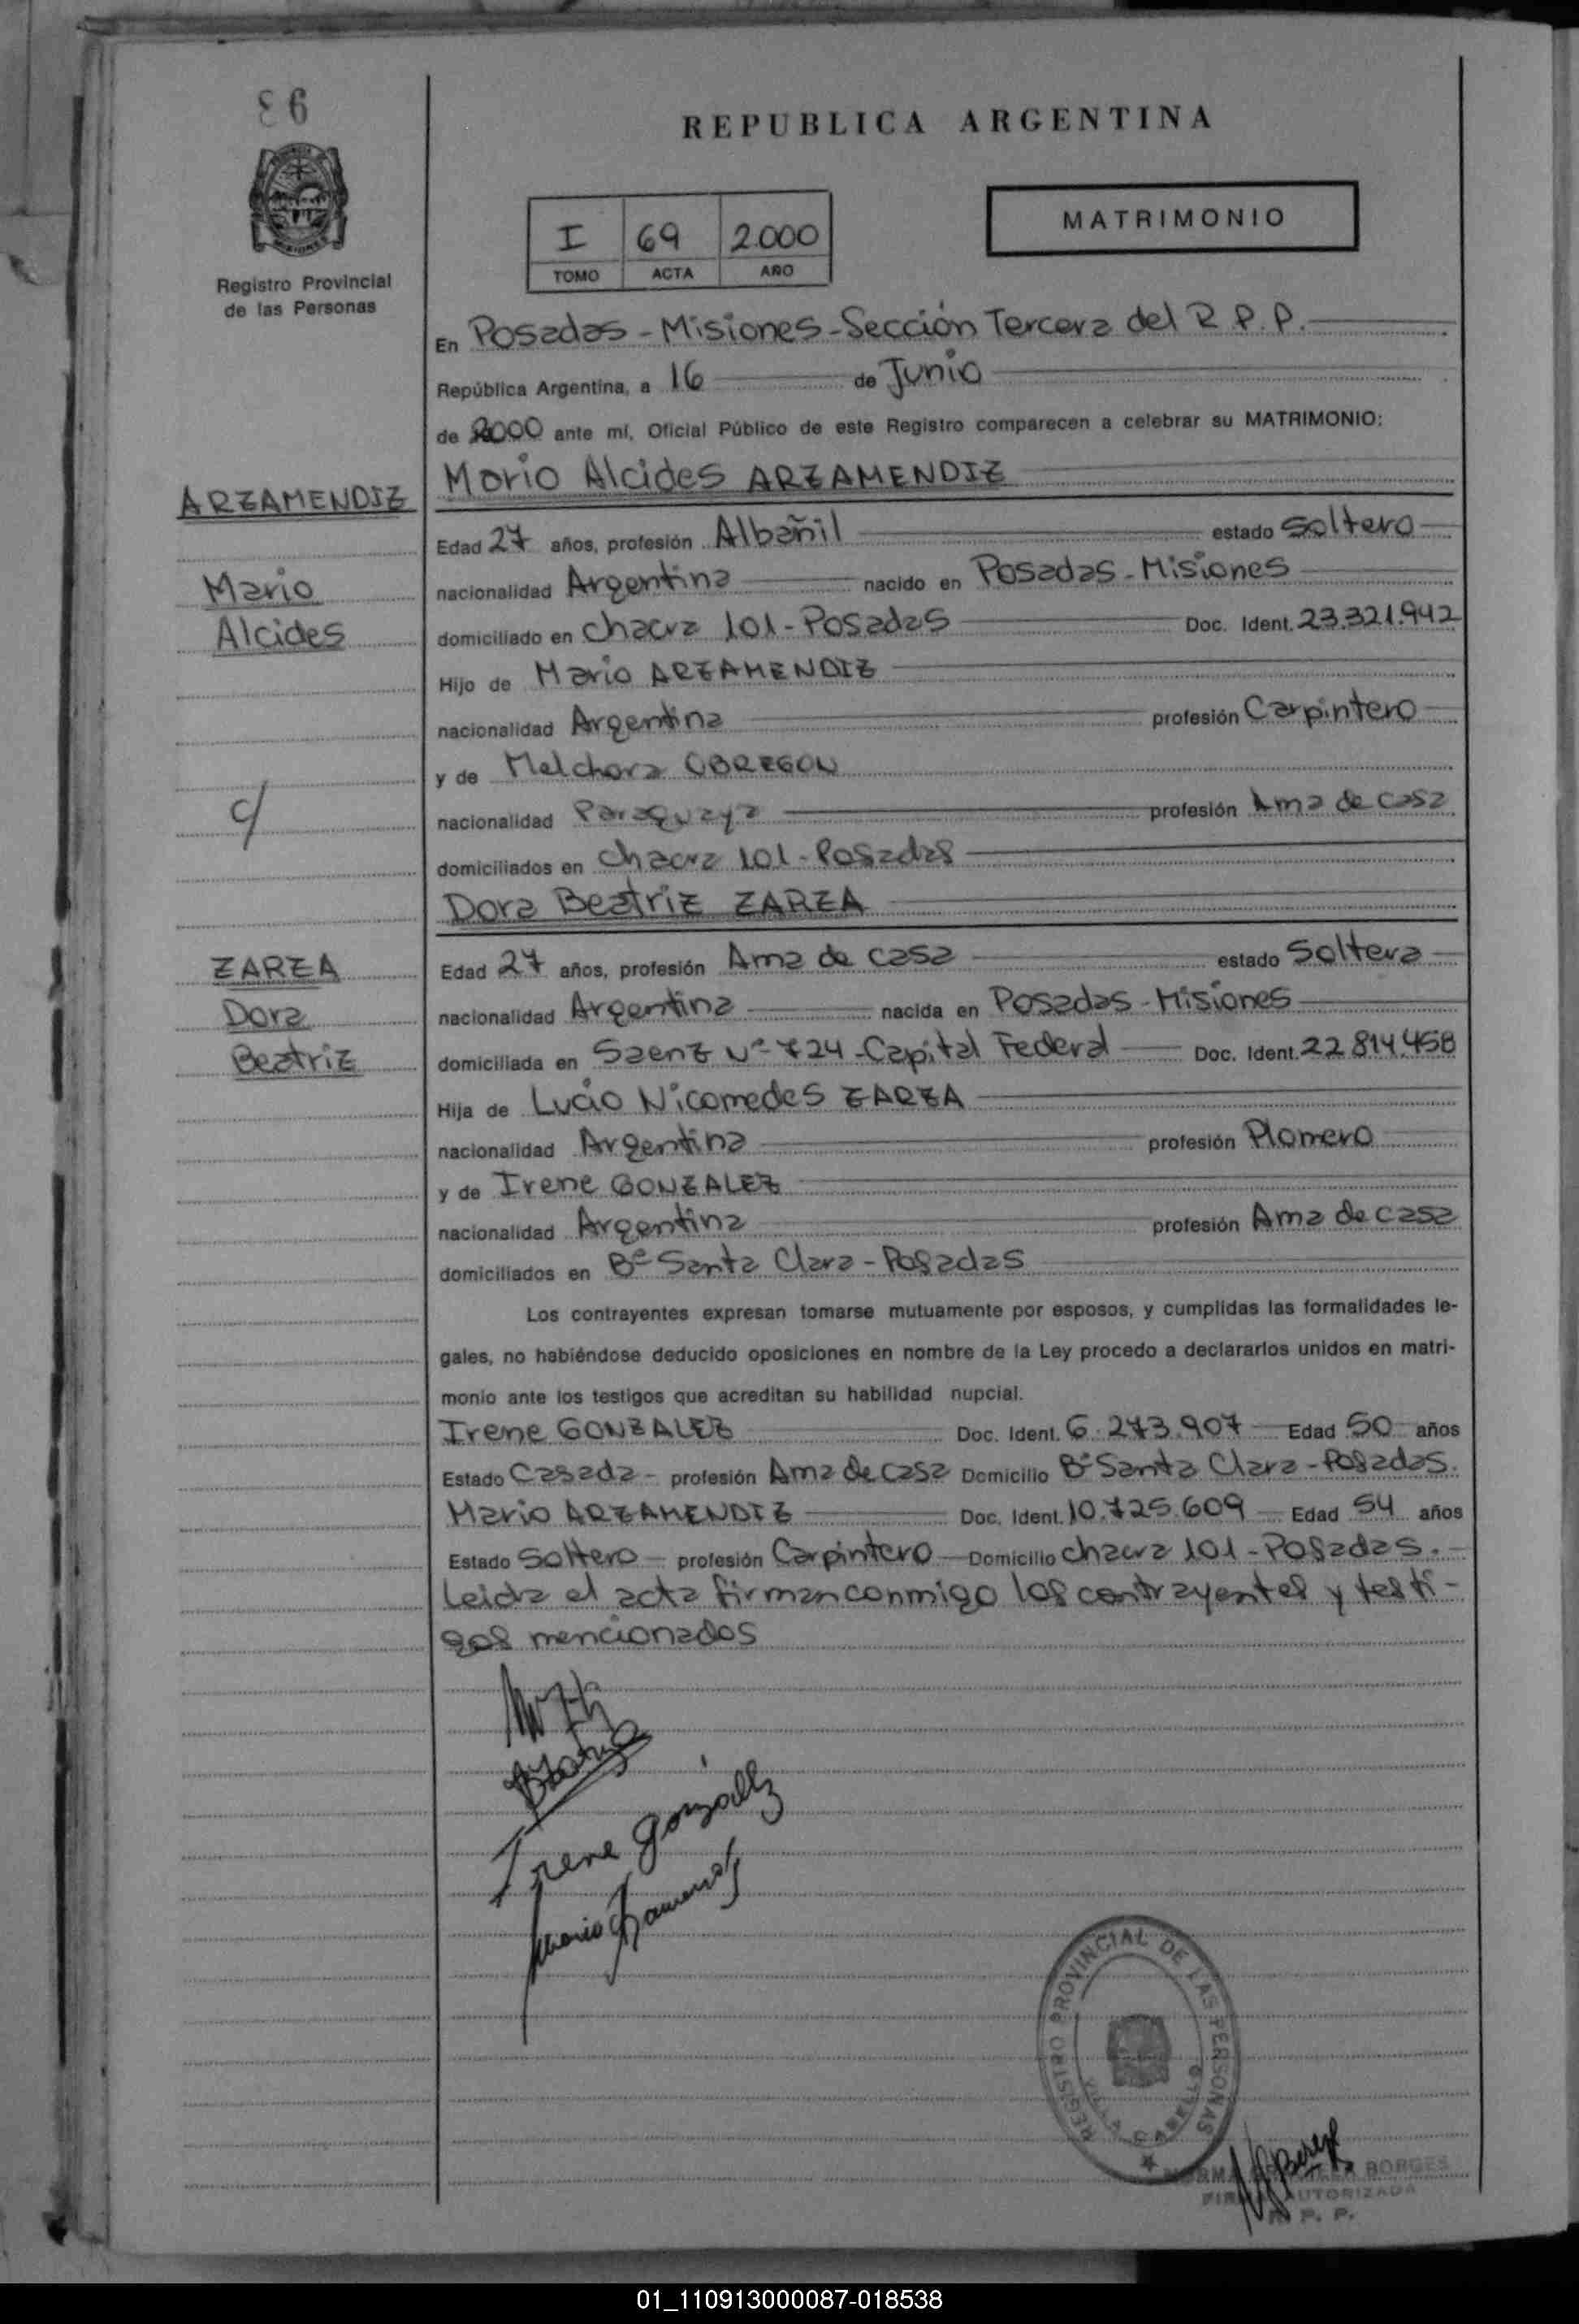 REPUBLICA ARGENTINA
MATRIMONIO
I 69 2.000
TOMO ACTA AÑO
Registro Provincial
de las Personas
En Posadas - Misiones - Sección Tercera del R.P.P.
República Argentina, a 16 de Junio
de 2000 ante mí, Oficial Público de este Registro comparecen a celebrar su MATRIMONIO:
ARZAMENDIZ
Mario
Alcides
c/
ZARZA
Dora
Beatriz
Mario Alcides ARZAMENDIZ
Edad 27 años, profesión Albañil estado Soltero
nacionalidad Argentina nacido en Posadas - Misiones
domiciliado en Chacra 101 - Posadas Doc. Ident. 23.321.942
Hijo de Mario ARZAMENDIZ
nacionalidad Argentina profesión Carpintero
y de Melchora OBREGON
nacionalidad Paraguaya profesión Ama de casa
domiciliados en Chacra 101 - Posadas
Dora Beatriz ZARZA
Edad 27 años, profesión Ama de casa estado Soltera
nacionalidad Argentina nacida en Posadas - Misiones
domiciliada en Saenz Nº 724 - Capital Federal Doc. Ident. 22.814.458
Hija de Lucio Nicomedes ZARZA
nacionalidad Argentina profesión Plomero
y de Irene GONZALEZ
nacionalidad Argentina profesión Ama de casa
domiciliados en Bº Santa Clara - Posadas
Los contrayentes expresan tomarse mutuamente por esposos, y cumplidas las formalidades le-
gales, no habiéndose deducido oposiciones en nombre de la Ley procedo a declararlos unidos en matri-
monio ante los testigos que acreditan su habilidad nupcial.
Irene GONZALEZ Doc. Ident. 6.273.907 Edad 50 años
Estado Casada - profesión Ama de casa Domicilio Bº Santa Clara - Posadas.
Mario ARZAMENDIZ Doc. Ident. 10.725.609 Edad 54 años
Estado Soltero - profesión Carpintero - Domicilio Chacra 101 - Posadas. -
Leida el acta firman conmigo los contrayentes y testi-
gos mencionados
Irene González
REGISTRO PROVINCIAL DE LAS PERSONAS
VILLA CABELLO
NORMA BORGES
FIRMA AUTORIZADA
R. P. P.
01_110913000087-018538